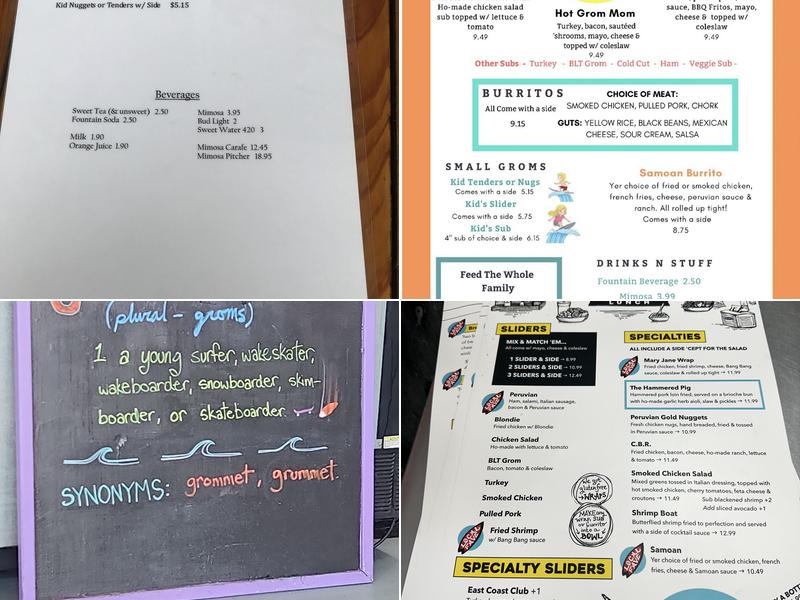 Kid Nuggets or Tenders w/ Side $5.15
Beverages
Sweet Tea (& unsweet) 2.50
Fountain Soda 2.50
Milk 1.90
Orange Juice 1.90
Mimosa 3.95
Bud Light 2
Sweet Water 420 3
Mimosa Carafe 12.45
Mimosa Pitcher 18.95
Ho-made chicken salad
sub topped w/ lettuce &
tomato
9.49
Hot Grom Mom
Turkey, bacon, sautéed
'shrooms, mayo, cheese &
topped w/ coleslaw
9.49
sauce, BBQ Fritos, mayo,
cheese & topped w/
coleslaw
9.49
Other Subs - Turkey - BLT Grom - Cold Cut - Ham - Veggie Sub -
BURRITOS
All Come with a side
9.15
CHOICE OF MEAT:
SMOKED CHICKEN, PULLED PORK, CHORK
GUTS: YELLOW RICE, BLACK BEANS, MEXICAN
CHEESE, SOUR CREAM, SALSA
SMALL GROMS
Kid Tenders or Nugs
Comes with a side 5.15
Kid's Slider
Comes with a side 5.75
Kid's Sub
4" sub of choice & side 6.15
Samoan Burrito
Yer choice of fried or smoked chicken,
french fries, cheese, peruvian sauce &
ranch. All rolled up tight!
Comes with a side
8.75
Feed The Whole
Family
DRINKS N STUFF
Fountain Beverage 2.50
Mimosa 3.99
(plural - groms)
1. a young surfer, wakeskater,
wakeboarder, snowboarder, skim-
boarder, or skateboarder.
SYNONYMS: grommet, grummet.
LUNCH
SLIDERS
MIX & MATCH 'EM...
All come w/ mayo, cheese & coleslaw
1 SLIDER & SIDE → 8.99
2 SLIDERS & SIDE → 10.99
3 SLIDERS & SIDE → 12.49
LOCAL FAVE
Peruvian
Ham, salami, Italian sausage,
bacon & Peruvian sauce
Blondie
Fried chicken w/ Blondie
Chicken Salad
Ho-made with lettuce & tomato
BLT Grom
Bacon, tomato & coleslaw
Turkey
Smoked Chicken
Pulled Pork
LOCAL FAVE
Fried Shrimp
w/ Bang Bang sauce
We got gluten free WRAPS
MAKE any wrap, sub or burrito into a BOWL
SPECIALTY SLIDERS
East Coast Club +1
SPECIALTIES
ALL INCLUDE A SIDE 'CEPT FOR THE SALAD
LOCAL FAVE
Mary Jane Wrap
Fried chicken, fried shrimp, cheese, Bang Bang
sauce, coleslaw & rolled up tight → 11.99
The Hammered Pig
Hammered pork loin fried, served on a brioche bun
with ho-made garlic herb aioli, slaw & pickles → 11.99
Peruvian Gold Nuggets
Fresh chicken nugs, hand breaded, fried & tossed
in Peruvian sauce → 10.99
C.B.R.
Fried chicken, bacon, cheese, ho-made ranch, lettuce
& tomato → 11.49
Smoked Chicken Salad
Mixed greens tossed in Italian dressing, topped with
hot smoked chicken, cherry tomatoes, feta cheese &
croutons → 11.49 Sub blackened shrimp +2
Add sliced avocado +1
Shrimp Boat
Butterflied shrimp fried to perfection and served
with a side of cocktail sauce → 12.99
LOCAL FAVE
Samoan
Yer choice of fried or smoked chicken, french
fries, cheese & Samoan sauce → 10.49